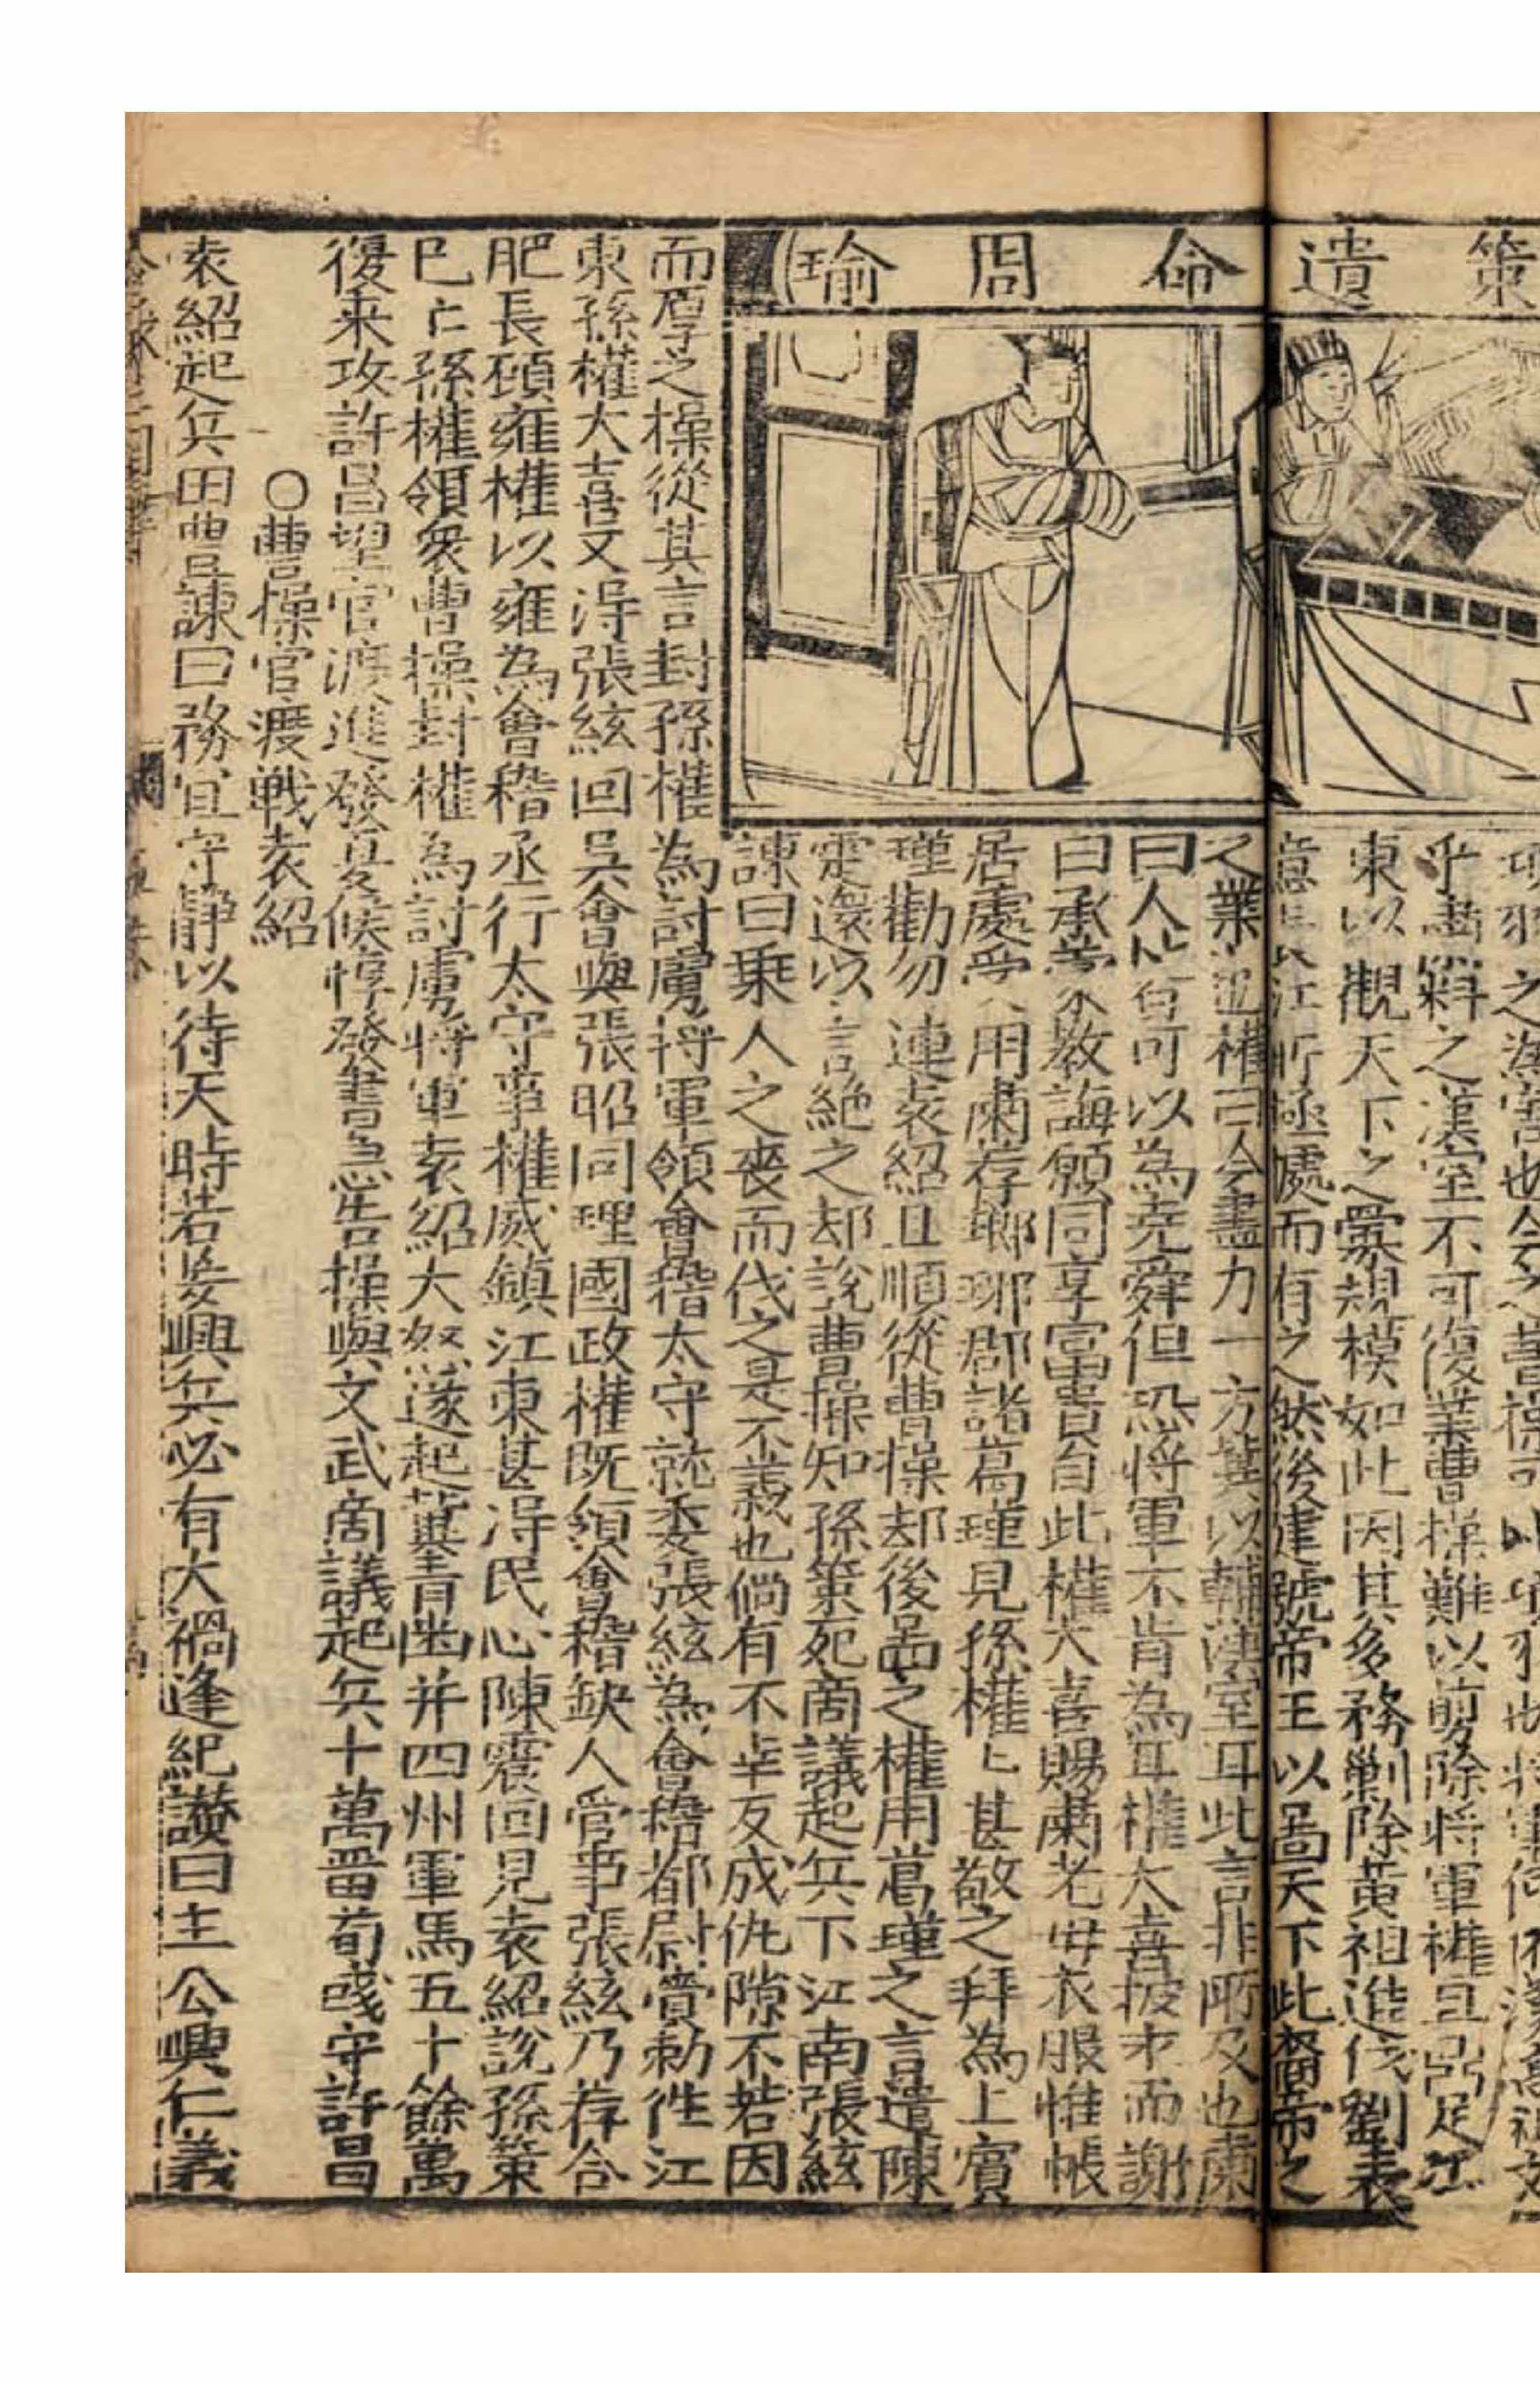 策遺命周瑜
乎肅料之漢室不可復業曹操難以剪除將軍權且號足江
東以觀天下之釁規模如此因其多務剿除黃祖進伐劉表
意長江所極處而有之然後建號帝王以啚天下此高帝之
之業也權曰今盡力一方冀以輔漢室耳此言非所及也肅
曰人皆可以為堯舜但恐將軍不肯為耳權大喜披衣而謝
曰承教誨願同享富貴自此權大喜賜肅老母衣服惟帳
居處用肅荐瑯琊郡諸葛瑾見孫權〻甚敬之拜為上賓
瑾勸勿連袁紹且順從曹操却後啚之權用葛瑾之言遣陳
震還以言絶之却說曹操知孫策死商議起兵下江南張紘
諫曰乗人之喪而伐之是不義也倘有不幸反成仇隙不若因
而厚之操從其言封孫權為討虜将軍領會稽太守就委張紘為會稽都尉賫勅徃江
東孫權大喜又淂張紘回吳會與張昭同理國政權既領會稽缺人管事張紘乃荐合
肥長碩雍權以雍為會稽丞行太守事權威鎮江東甚淂民心陳震回見袁紹說孫策
已亡孫權領衆曹操封權為討虜将軍袁紹大怒遂起冀青幽并四州軍馬五十餘萬
復來攻許昌望官渡進發夏侯惇發書急告操與文武商議起兵十萬畱荀彧守許昌
○曹操官渡戰袁紹
袁紹起兵田豊諫曰務宜守靜以待天時若妄興兵必有大禍逢紀讃曰主公興仁義